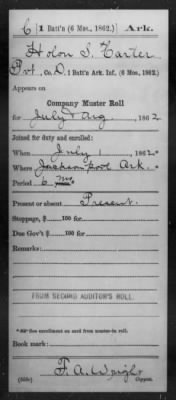 C | 1 Batt'n (6 Mos., 1862.) | Ark.
Holon S. Carter
Pvt, Co. D, 1 Batt'n Ark. Inf., (6 Mos., 1862.)
Appears on
Company Muster Roll
for July & Aug, 1862
Joined for duty and enrolled:
When July 1, 1862.*
Where Jacksonport Ark.
Period 6 mo.
Present or absent Present.
Stoppage, $ 100 for
Due Gov't $ 100 for
Remarks:
FROM SECOND AUDITOR'S ROLL.
*See enrollment on card from muster-in roll.
Book mark:
F. A. Wright
Copyist.